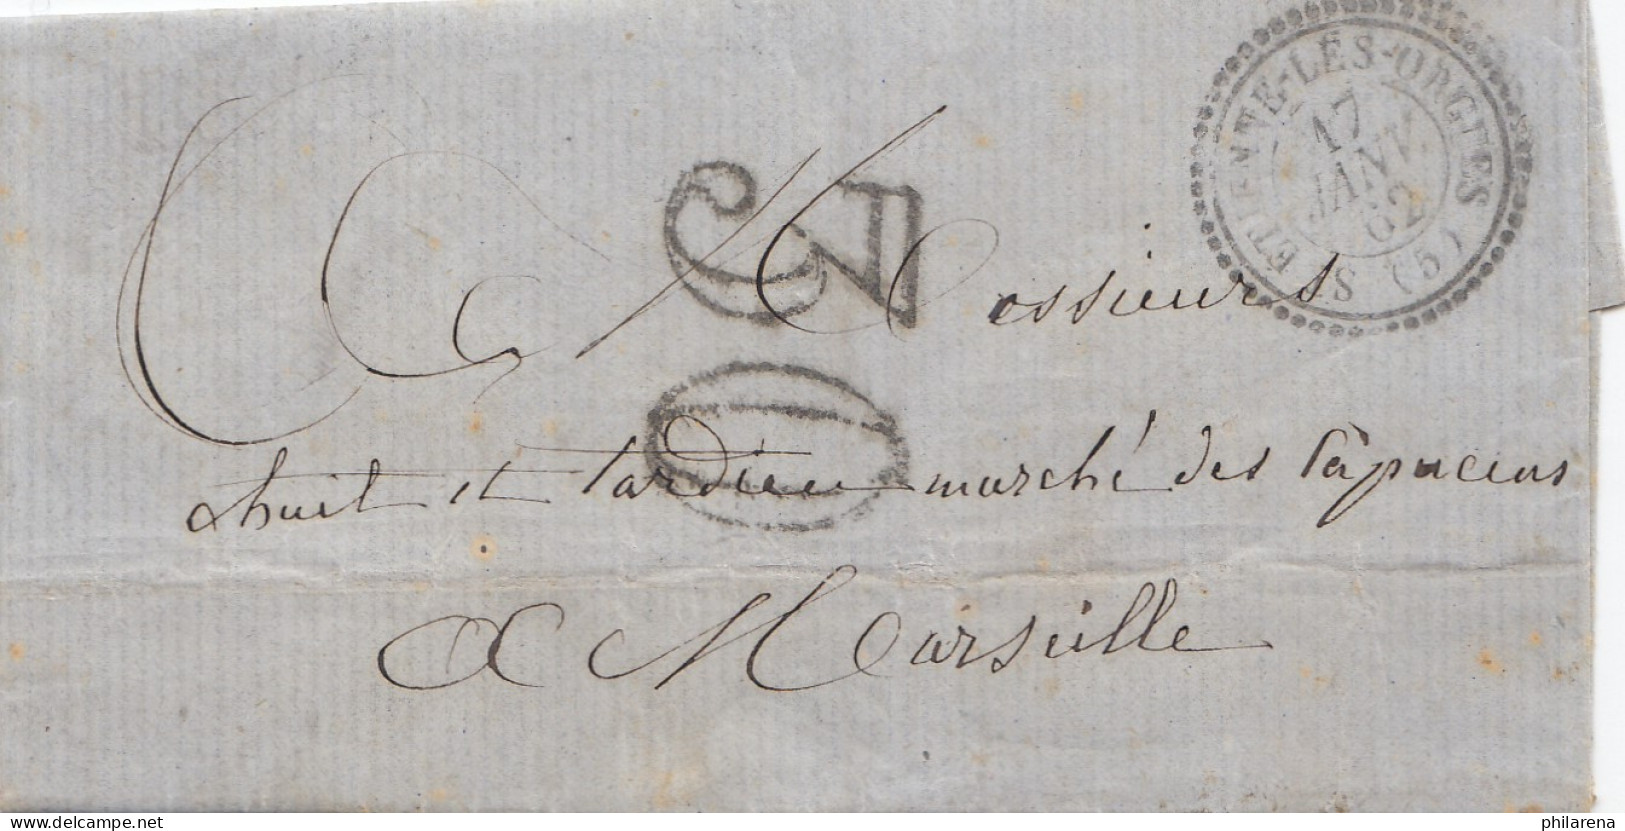 ST ETIENNE-LES-ORGUES (5)
17
JANV.
62
Messieurs
huit et tardieu marché des Capucins
a Marseille
www.delcampe.net
philarena